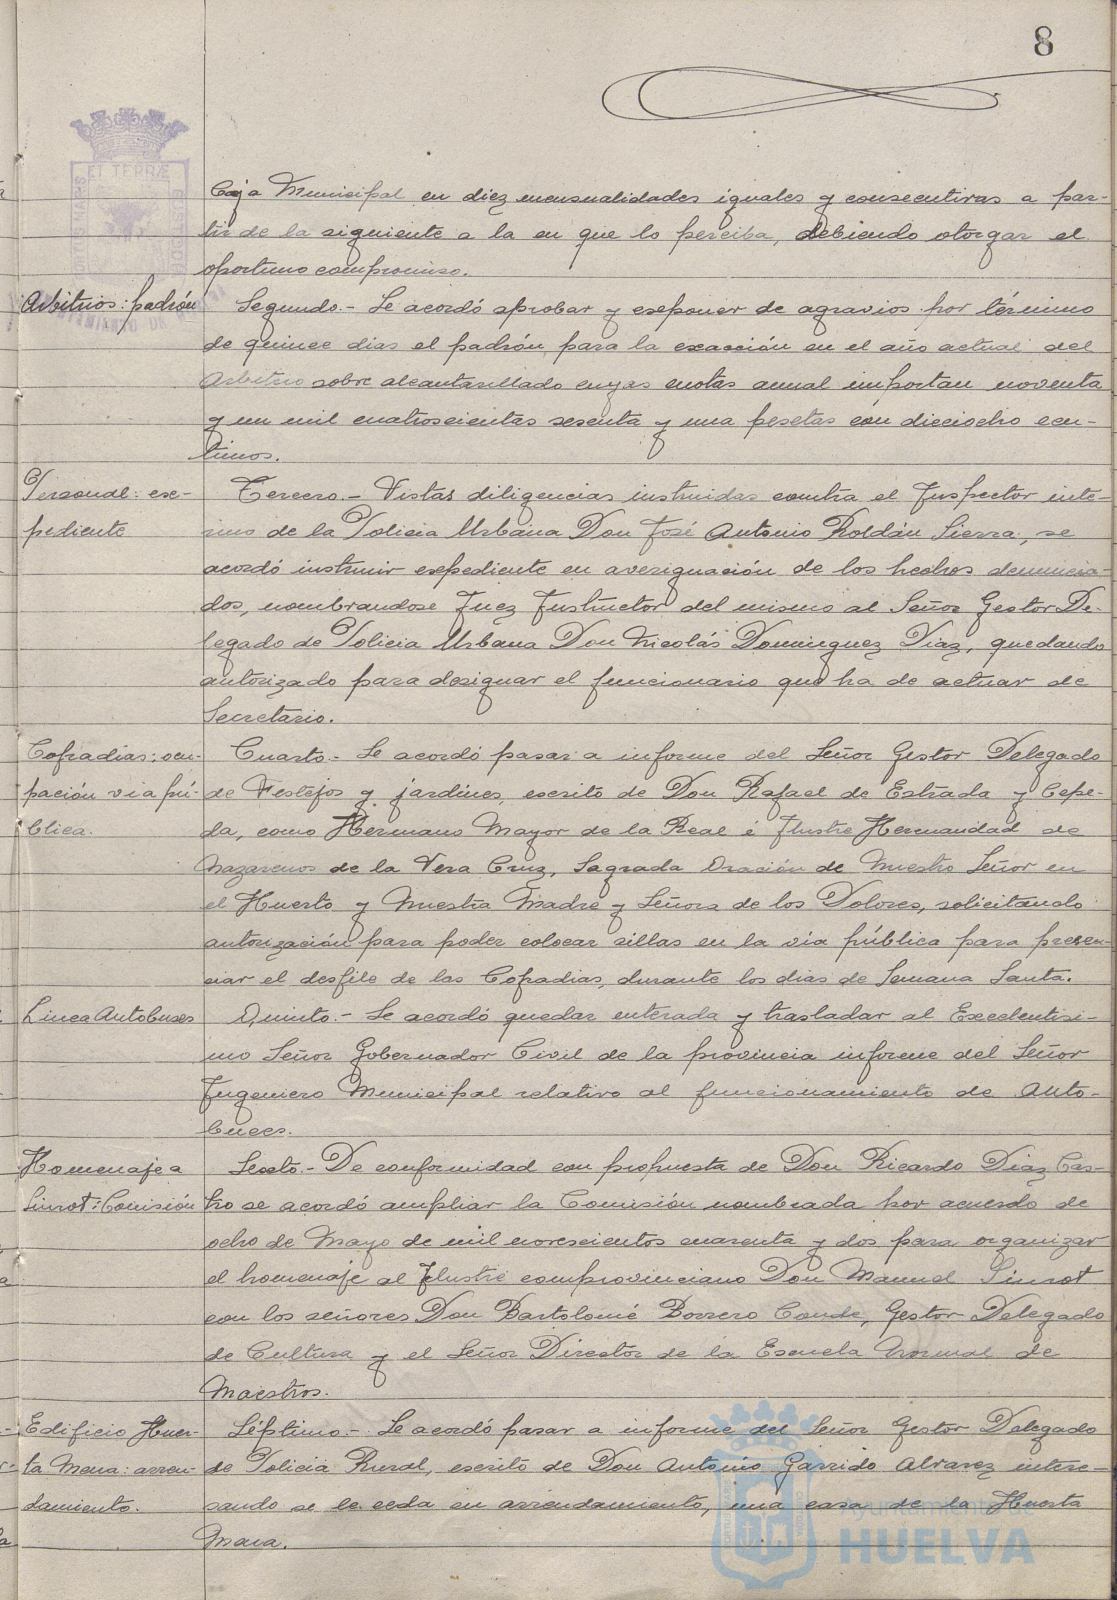 8
Caja Municipal en diez mensualidades iguales y consecutivas a par-
tir de la siguiente a la en que lo perciba, debiendo otorgar el
oportuno compromiso.
Arbitrios: padrón
Segundo.- Se acordó aprobar y exponer de agravios por término
de quince dias el padrón para la exacción en el año actual del
Arbitrio sobre alcantarillado cuyas cuotas anual importan noventa
y un mil cuatroscientas sesenta y una pesetas con dieciocho cen-
timos.
Personal: ex-
pediente
Tercero.- Vistas diligencias instruidas contra el Inspector inte-
rino de la Policia Urbana Don José Antonio Roldán Sierra, se
acordó instruir expediente en averiguación de los hechos denuncia-
dos, nombrandose Juez Instructor del mismo al Señor Gestor De-
legado de Policia Urbana Don Nicolás Dominguez Diaz, quedando
autorizado para designar el funcionario que ha de actuar de
Secretario.
Cofradias: ocu-
pación via pú-
blica.
Cuarto.- Se acordó pasar a informe del Señor Gestor Delegado
de Festejos y jardines, escrito de Don Rafael de Estrada y Cepe-
da, como Hermano Mayor de la Real é Ilustre Hermandad de
Nazarenos de la Vera Cruz, Sagrada Oración de Nuestro Señor en
el Huerto y Nuestra Madre y Señora de los Dolores, solicitando
autorización para poder colocar sillas en la via pública para presen-
ciar el desfile de las Cofradias, durante los dias de Semana Santa.
Linea Autobuses
Quinto.- Se acordó quedar enterada y trasladar al Excelentisi-
mo Señor Gobernador Civil de la provincia informe del Señor
Ingeniero Municipal relativo al funcionamiento de Auto-
buses.
Homenaje a
Siurot: Comisión
Sexto.- De conformidad con propuesta de Don Ricardo Diaz Cas-
tro se acordó ampliar la Comisión nombrada por acuerdo de
ocho de Mayo de mil novescientos cuarenta y dos para organizar
el homenaje al Ilustre comprovinciano Don Manuel Siurot
con los señores Don Bartolomé Borrero Conde, Gestor Delegado
de Cultura y el Señor Director de la Escuela Normal de
Maestros.
Edificio Huer-
ta Mena: arren-
damiento.
Séptimo.- Se acordó pasar a informe del Señor Gestor Delegado
de Policia Rural, escrito de Don Antonio Garrido Alvarez intere-
sando se le ceda en arrendamiento, una casa de la Huerta
Mena.
Ayuntamiento de
HUELVA